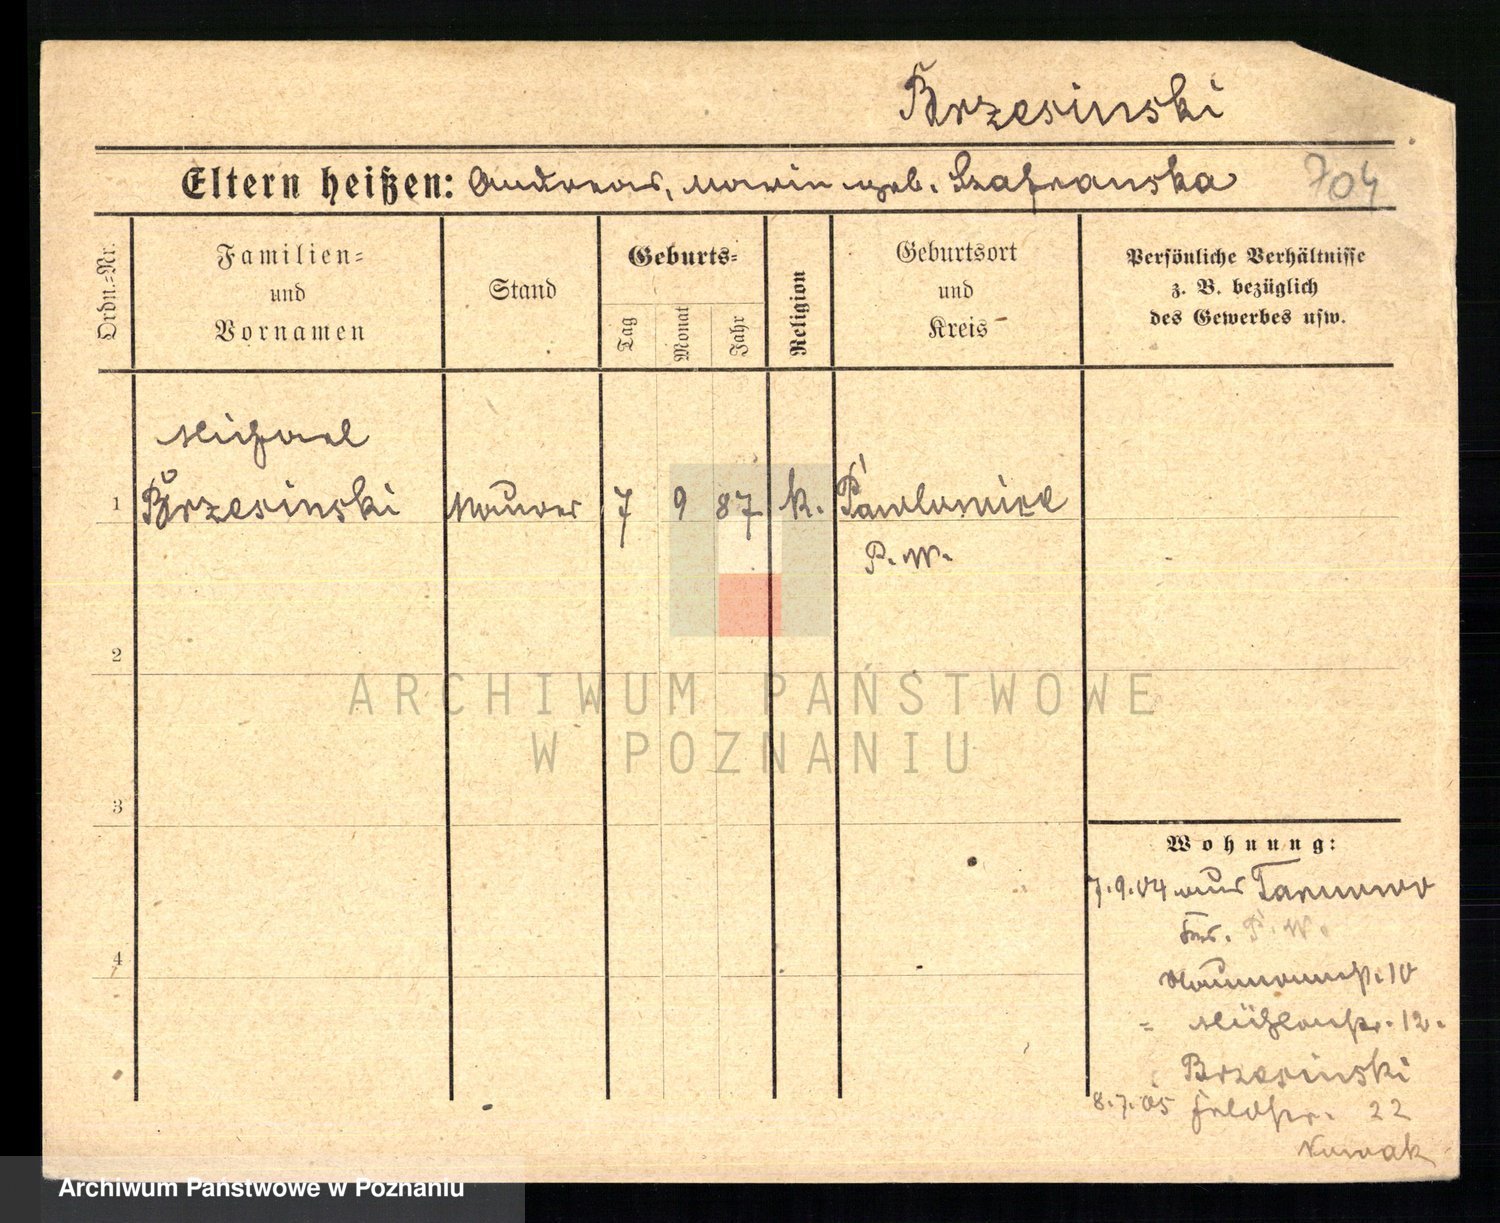 Brzesinski
Eltern heißen: Andreas, Marie geb. Szafranska
704
Ordn.=Nr.
Familien=
und
Vornamen
Stand
Geburts=
Tag
Monat
Jahr
Religion
Geburtsort
und
Kreis
Persönliche Verhältnisse
z. B. bezüglich
des Gewerbes usw.
Michael
1 Brzesinski Maurer 7 9 87 k. Pawlowice
P. W.
2
3
4
Wohnung:
7.9.04 aus Tarnowo
P. W.
Naumannstr. 10
= Mühlenstr. 12.
Brzesinski
8.7.05 Feldstr. 22
Nowak
ARCHIWUM PAŃSTWOWE
W POZNANIU
Archiwum Państwowe w Poznaniu